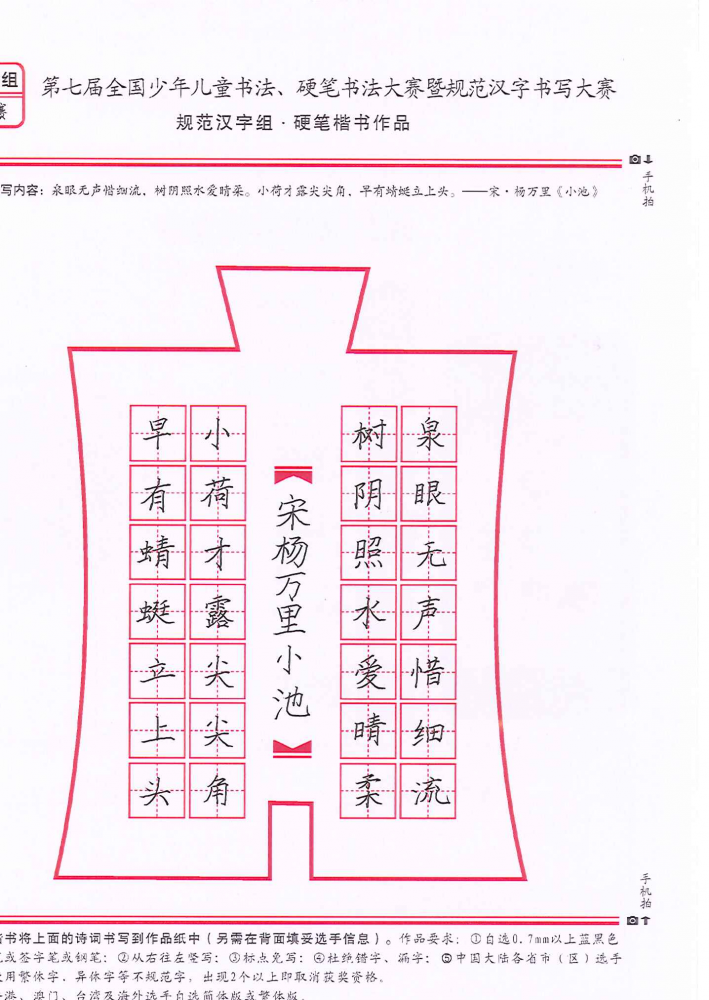 组
赛
第七届全国少年儿童书法、硬笔书法大赛暨规范汉字书写大赛
规范汉字组·硬笔楷书作品
手机拍
写内容：泉眼无声惜细流，树阴照水爱晴柔。小荷才露尖尖角，早有蜻蜓立上头。——宋·杨万里《小池》
泉眼无声惜细流
树阴照水爱晴柔
宋杨万里小池
小荷才露尖尖角
早有蜻蜓立上头
手机拍
楷书将上面的诗词书写到作品纸中（另需在背面填妥选手信息）。作品要求：①自选0.7mm以上蓝黑色
或签字笔或钢笔；②从右往左竖写；③标点免写；④杜绝错字、漏字；⑤中国大陆各省市（区）选手
用繁体字、异体字等不规范字，出现2个以上即取消获奖资格。
港、澳门、台湾及海外选手自选简体版或繁体版。